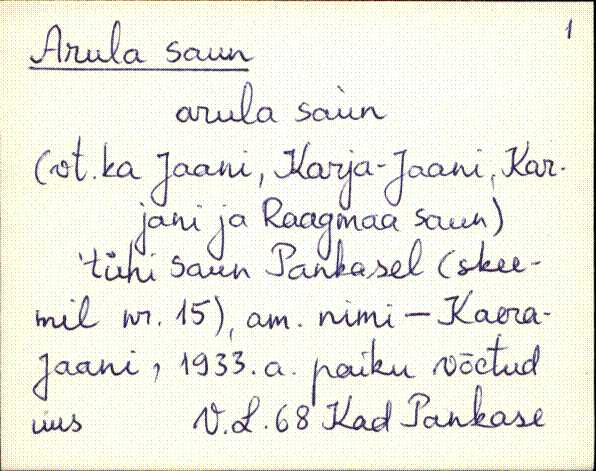 1
Arula saun
arula saùn
(vt. ka Jaani, Karja-Jaani, Kar-
jani ja Raagmaa saun)
'tühi saun Pankasel (skee-
mil nr. 15), am. nimi – Kaera-
Jaani, 1933. a. paiku võetud
uus V.L. 68 Kad Pankase